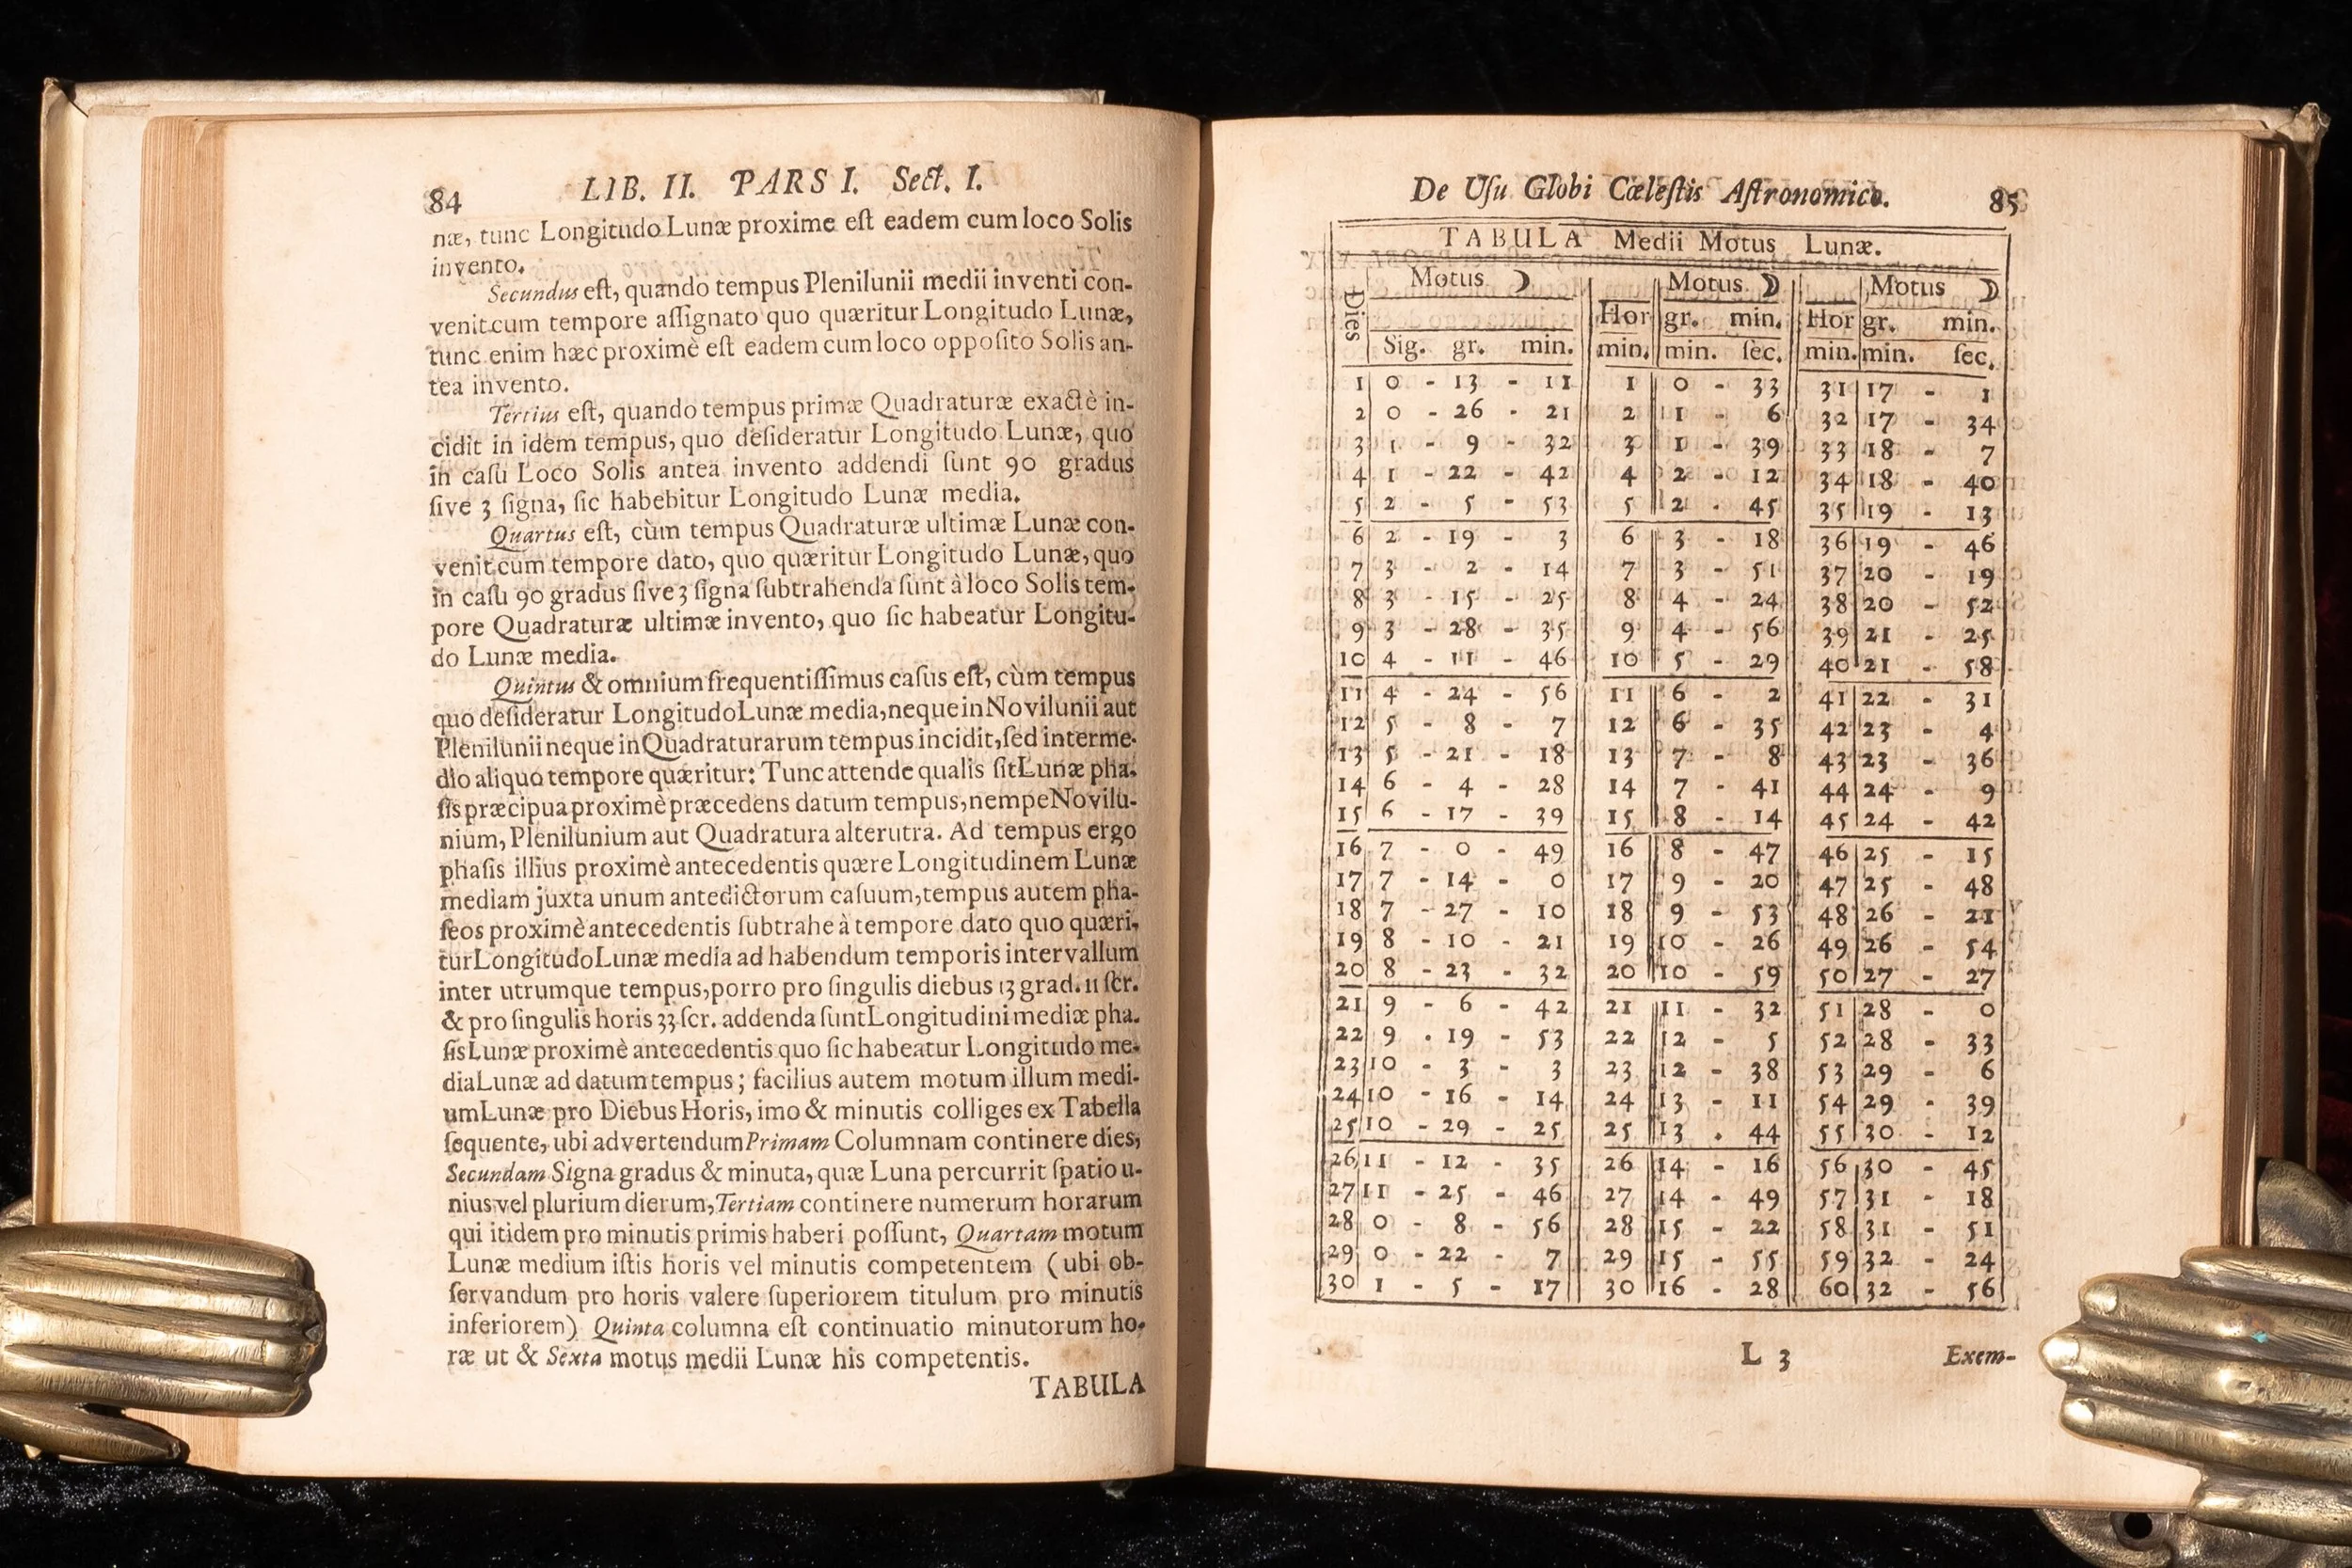 84 LIB. II. PARS I. Sect. I.
næ, tunc Longitudo Lunæ proxime eſt eadem cum loco Solis
invento.
Secundus eſt, quando tempus Plenilunii medii inventi con-
venit cum tempore aſſignato quo quæritur Longitudo Lunæ,
tunc enim hæc proximè eſt eadem cum loco oppoſito Solis an-
tea invento.
Tertius eſt, quando tempus primæ Quadraturæ exactè in-
cidit in idem tempus, quo deſideratur Longitudo Lunæ, quo
in caſu Loco Solis antea invento addendi ſunt 90 gradus
ſive 3 ſigna, ſic habebitur Longitudo Lunæ media.
Quartus eſt, cùm tempus Quadraturæ ultimæ Lunæ con-
venit cum tempore dato, quo quæritur Longitudo Lunæ, quo
in caſu 90 gradus ſive 3 ſigna ſubtrahenda ſunt à loco Solis tem-
pore Quadraturæ ultimæ invento, quo ſic habeatur Longitu-
do Lunæ media.
Quintus & omnium frequentiſſimus caſus eſt, cùm tempus
quo deſideratur Longitudo Lunæ media, neque in Novilunii aut
Plenilunii neque in Quadraturarum tempus incidit, ſed interme-
dio aliquo tempore quæritur: Tunc attende qualis ſit Lunæ pha-
ſis præcipua proximè præcedens datum tempus, nempe Novilu-
nium, Plenilunium aut Quadratura alterutra. Ad tempus ergo
phaſis illius proximè antecedentis quære Longitudinem Lunæ
mediam juxta unum antedictorum caſuum, tempus autem pha-
ſeos proximè antecedentis ſubtrahe à tempore dato quo quæri-
tur Longitudo Lunæ media ad habendum temporis intervallum
inter utrumque tempus, porro pro ſingulis diebus 13 grad. 11 ſcr.
& pro ſingulis horis 33 ſcr. addenda ſunt Longitudini mediæ pha-
ſis Lunæ proximè antecedentis quo ſic habeatur Longitudo me-
dia Lunæ ad datum tempus; facilius autem motum illum medi-
um Lunæ pro Diebus Horis, imo & minutis colliges ex Tabella
ſequente, ubi advertendum Primam Columnam continere dies,
Secundam Signa gradus & minuta, quæ Luna percurrit ſpatio u-
nius vel plurium dierum, Tertiam continere numerum horarum
qui itidem pro minutis primis haberi poſſunt, Quartam motum
Lunæ medium iſtis horis vel minutis competentem (ubi ob-
ſervandum pro horis valere ſuperiorem titulum pro minutis
inferiorem) Quinta columna eſt continuatio minutorum ho-
ræ ut & Sexta motus medii Lunæ his competentis.
TABULA
De Uſu Globi Cœleſtis Aſtronomico. 85
TABULA Medii Motus Lunæ.
Dies Motus ☽ Motus ☽ Motus ☽
Hor gr. min. Hor gr. min.
Sig. gr. min. min. min. ſec. min. min. ſec.
1 0 - 13 - 11 1 0 - 33 31 17 - 1
2 0 - 26 - 21 2 1 - 6 32 17 - 34
3 1 - 9 - 32 3 1 - 39 33 18 - 7
4 1 - 22 - 42 4 2 - 12 34 18 - 40
5 2 - 5 - 53 5 2 - 45 35 19 - 13
6 2 - 19 - 3 6 3 - 18 36 19 - 46
7 3 - 2 - 14 7 3 - 51 37 20 - 19
8 3 - 15 - 25 8 4 - 24 38 20 - 52
9 3 - 28 - 35 9 4 - 56 39 21 - 25
10 4 - 11 - 46 10 5 - 29 40 21 - 58
11 4 - 24 - 56 11 6 - 2 41 22 - 31
12 5 - 8 - 7 12 6 - 35 42 23 - 4
13 5 - 21 - 18 13 7 - 8 43 23 - 36
14 6 - 4 - 28 14 7 - 41 44 24 - 9
15 6 - 17 - 39 15 8 - 14 45 24 - 42
16 7 - 0 - 49 16 8 - 47 46 25 - 15
17 7 - 14 - 0 17 9 - 20 47 25 - 48
18 7 - 27 - 10 18 9 - 53 48 26 - 21
19 8 - 10 - 21 19 10 - 26 49 26 - 54
20 8 - 23 - 32 20 10 - 59 50 27 - 27
21 9 - 6 - 42 21 11 - 32 51 28 - 0
22 9 . 19 - 53 22 12 - 5 52 28 - 33
23 10 - 3 - 3 23 12 - 38 53 29 - 6
24 10 - 16 - 14 24 13 - 11 54 29 - 39
25 10 - 29 - 25 25 13 . 44 55 30 - 12
26 11 - 12 - 35 26 14 - 16 56 30 - 45
27 11 - 25 - 46 27 14 - 49 57 31 - 18
28 0 - 8 - 56 28 15 - 22 58 31 - 51
29 0 - 22 - 7 29 15 - 55 59 32 - 24
30 1 - 5 - 17 30 16 - 28 60 32 - 56
L 3 Exem-